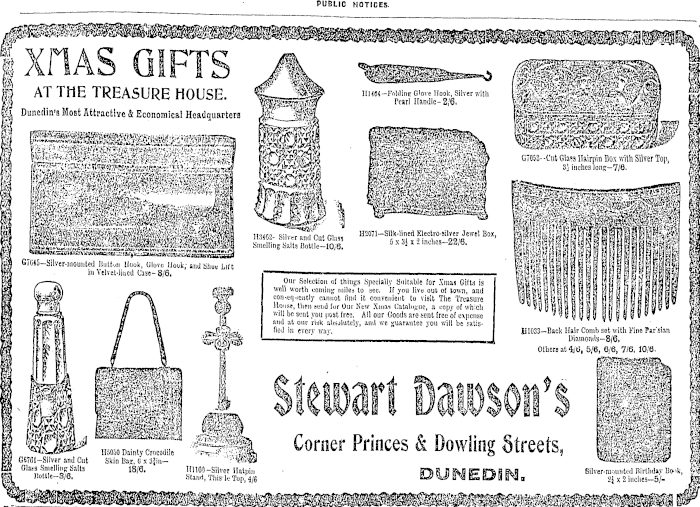 PUBLIC NOTICES.
XMAS GIFTS
AT THE TREASURE HOUSE.
Dunedin's Most Attractive & Economical Headquarters
H1464—Folding Glove Hook, Silver with
Pearl Handle—2/6.
G7653—Cut Glass Hairpin Box with Silver Top,
3½ inches long—7/6.
H3462—Silver and Cut Glass
Smelling Salts Bottle—10/6.
H2071—Silk-lined Electro-silver Jewel Box,
5 x 3½ x 2 inches—22/6.
G7645—Silver-mounted Button Hook, Glove Hook, and Shoe Lift
in Velvet-lined Case—8/6.
Our Selection of things Specially Suitable for Xmas Gifts is
well worth coming miles to see. If you live out of town, and
consequently cannot find it convenient to visit The Treasure
House, then send for Our New Xmas Catalogue, a copy of which
will be sent you post free. All our Goods are sent free of expense
and at our risk absolutely, and we guarantee you will be satis-
fied in every way.
H1033—Back Hair Comb set with Fine Parisian
Diamonds—8/6.
Others at 4/6, 5/6, 6/6, 7/6, 10/6.
G6761—Silver and Cut
Glass Smelling Salts
Bottle—9/6.
H5050 Dainty Crocodile
Skin Bag, 6 x 5½in—
18/6.
H1160—Silver Hatpin
Stand, 4/6
Stewart Dawson's
Corner Princes & Dowling Streets,
DUNEDIN.
Silver-mounted Birthday Book,
2½ x 2 inches—5/-